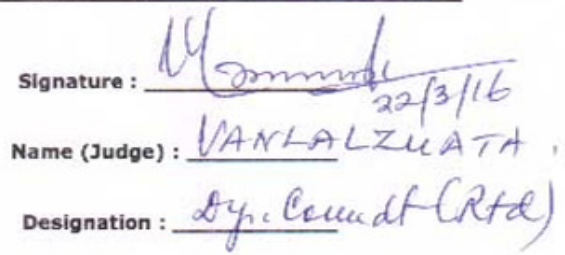 Signature :
22/3/16
Name (Judge) : VANLALZUATA .
Designation : Dy. Comdt (Rtd)